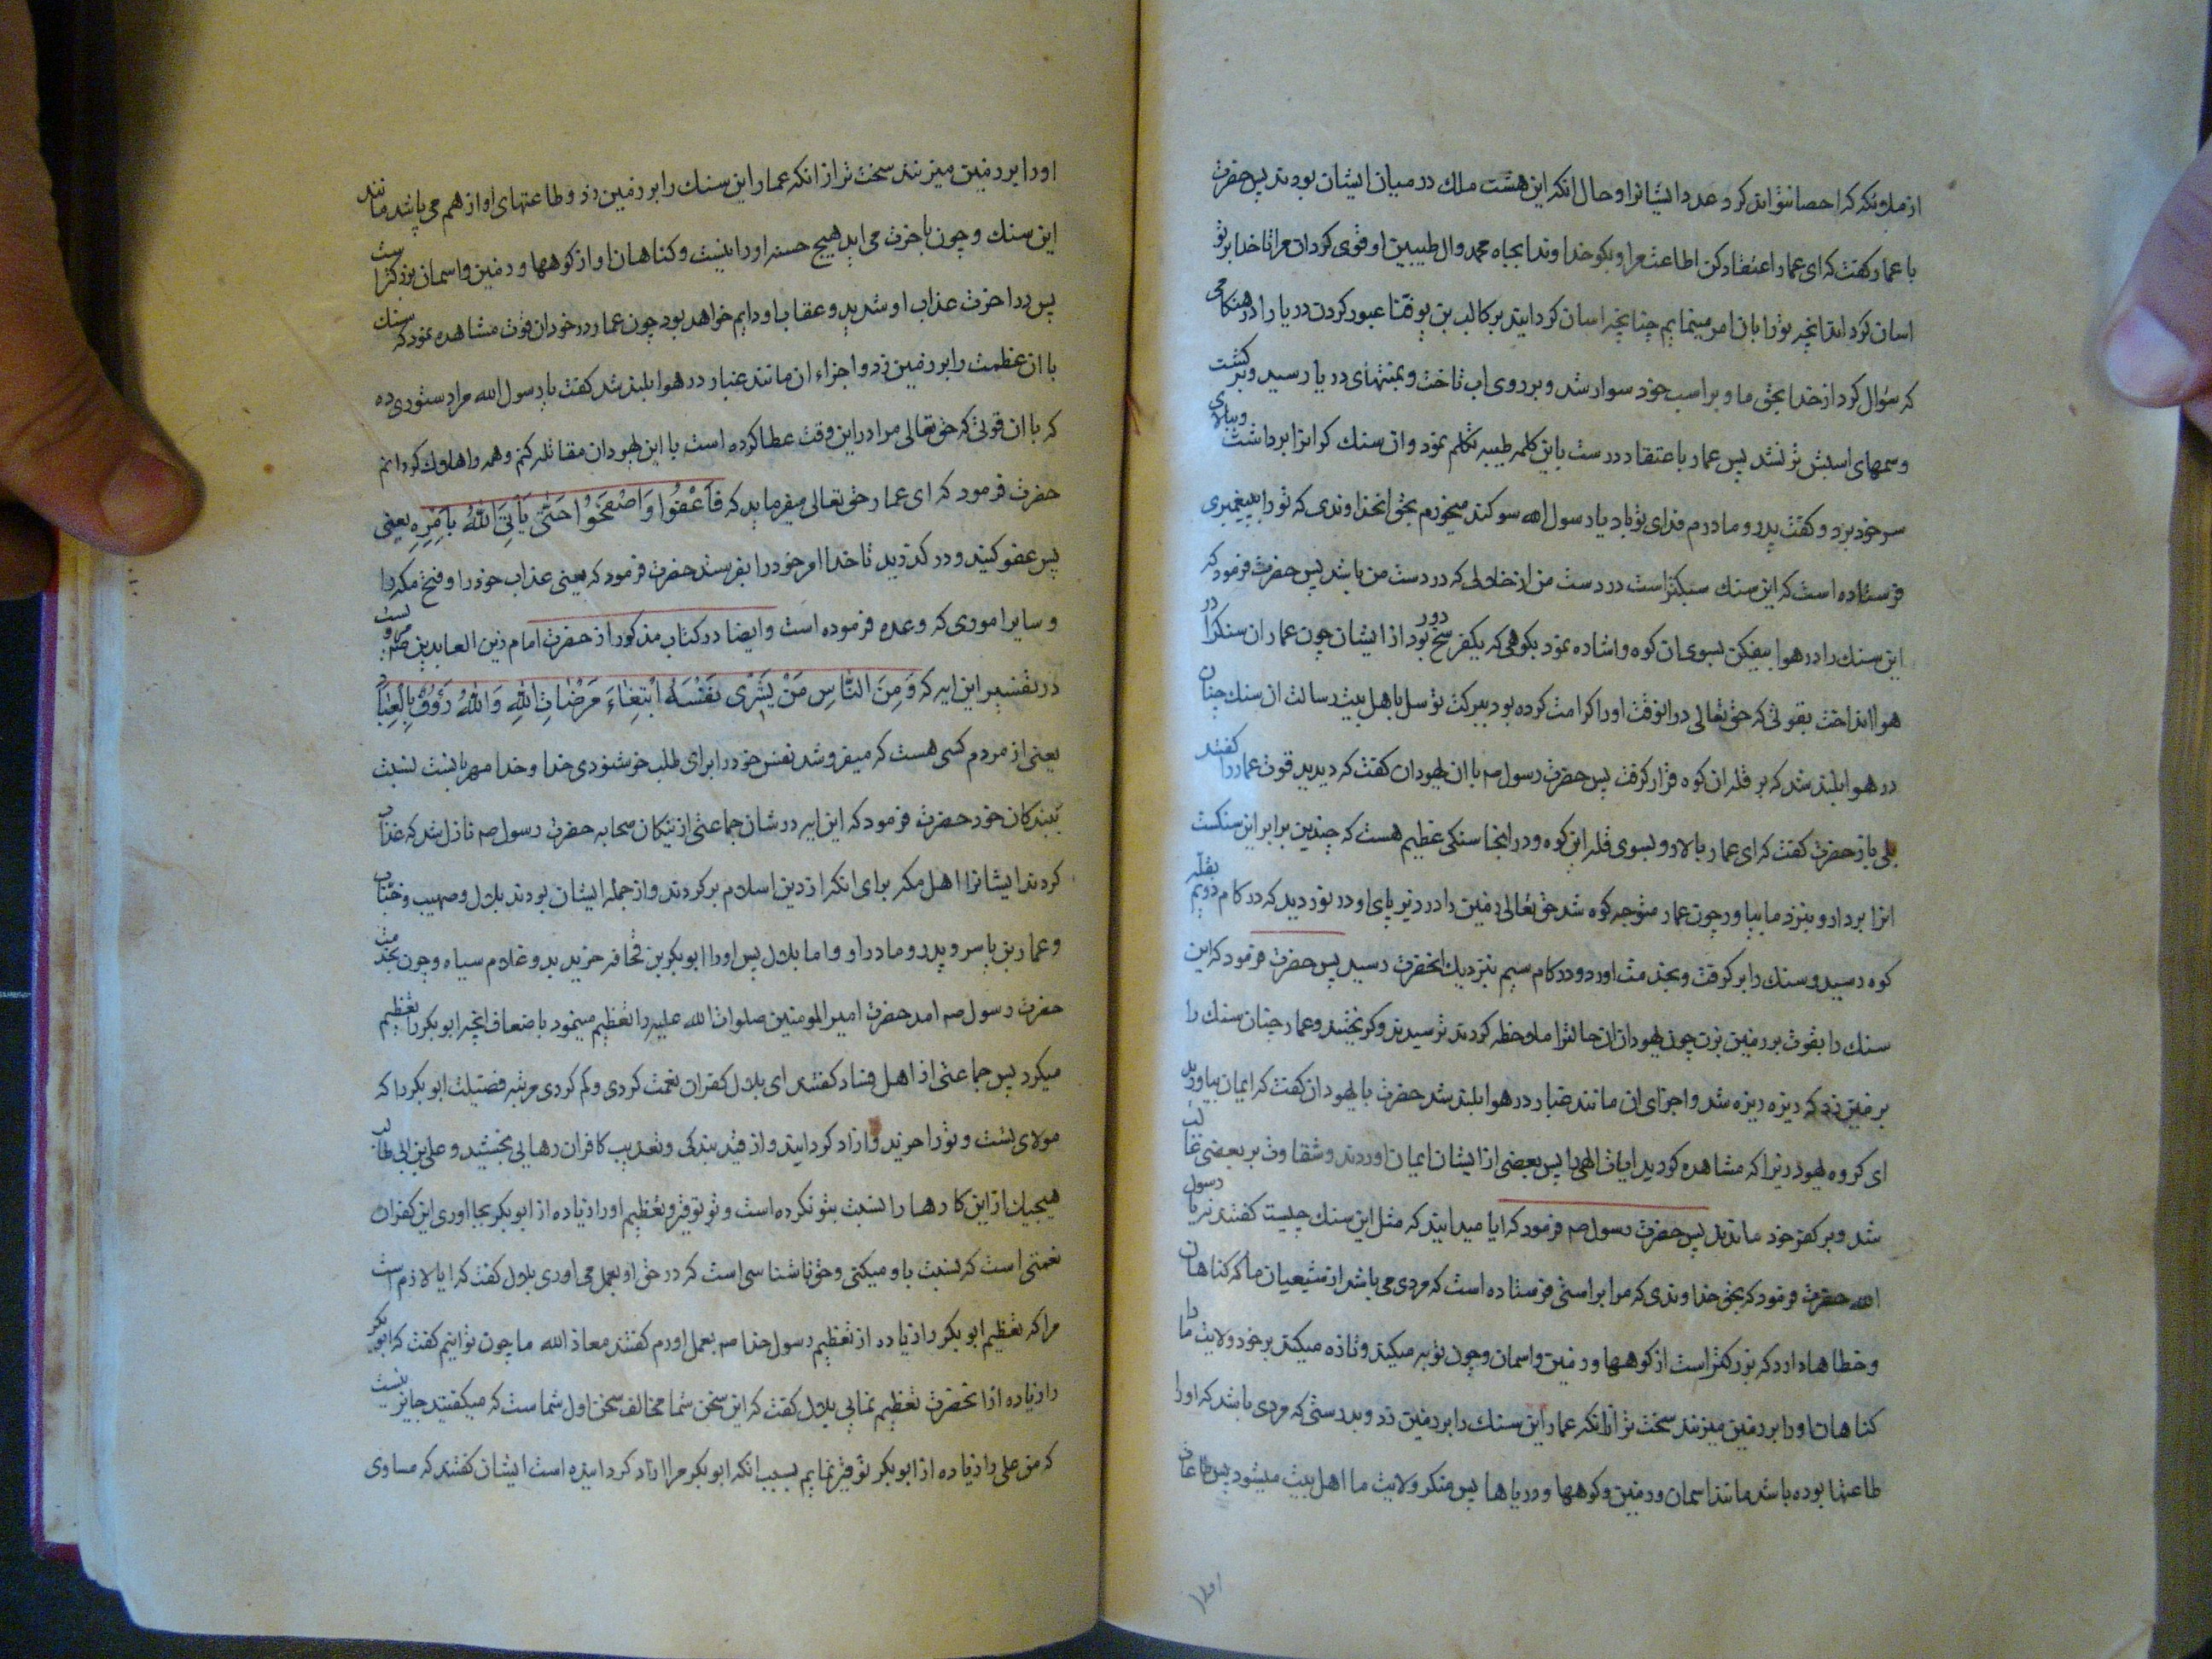 از ملائکه که احصا نتواند کرد عدد ایشانرا و حال انکه این هشت ملک در میان ایشان بودند پس حضرت
با عمار کفت که ای عمار اعتقاد کن اطاعت مرا و بکو خداوندا بجاه محمد و ال طیبین او قوی کردان مرا تا خدا بر تو
اسان کرداند انچه تورا بان امر مینمایم چنانچه اسان کردانید بر کالب بن یوقنا عبور کردن دریا را در هنکامی
که سؤال کرد از خدا بحق ما و بر اسب خود سوار شد و بر روی اب تاخت و بمنتهای دریا رسید و برکشت
و سمهای اسبش تر نشد پس عمار با عتقاد درست باین کلمه طیبه تکلم نمود و ان سنک کرانرا برداشت و ببالای
سر خود برد و کفت پدر و مادرم فدای تو باد یا رسول الله سوکند میخورم بحق انخداوندی که تورا به پیغمبری
فرستاده است که این سنک سبکتر است در دست من از خلالی که در دست من باشد پس حضرت فرمود که
این سنک را در هوا بیفکن بسوی ان کوه و اشاره نمود بکوهی که یکفرسخ دور بود از ایشان چون عمار ان سنکرا در
هوا انداخت بقوتی که حق تعالی در انوقت اورا کرامت کرده بود ببرکت توسل باهل بیت رسالت ان سنک چنان
در هوا بلند شد که بر قله ان کوه قرار کرفت پس حضرت رسول صم با ان یهودان کفت که دیدید قوت عمار را کفتند
بلی باز حضرت کفت که ای عمار بالا رو بسوی قله این کوه و در انجا سنکی عظیم هست که چندین برابر این سنکست
انرا بردار و بنزد ما بیاور چون عمار متوجه کوه شد حق تعالی زمین را در زیر پای او در نوردید که در کام دویم بقلّه
کوه رسید و سنک را بر کرفت و بخدمت اورد و در کام سیم بنزدیک انحضرت رسید پس حضرت فرمود که این
سنک را بقوت بر زمین بزن چون یهودان ان حالترا ملاحظه کردند ترسیدند و کریختند و عمار چنان سنک را
بر زمین زد که ریزه ریزه شد و اجزای ان مانند غبار در هوا بلند شد حضرت با یهودان کفت که ایمان بیاورید
ای کروه یهود زیرا که مشاهده کردید ایات الهی را پس بعضی از ایشان ایمان اوردند و شقاوت بر بعضی غالب
شد و بر کفر خود ماندند پس حضرت رسول صم فرمود که ایا میدانید که مثل این سنک چیست کفتند نه یا رسول
الله حضرت فرمود که بحق خداوندی که مرا براستی فرستاده است که مردی می باشد از شیعیان ما که کناهان
و خطاها دارد که بزرکتر است از کوهها و زمین و اسمان و چون توبه میکند و تازه میکند بر خود ولایت ما را
کناهان اورا بر زمین میزنند سخت تر از انکه عمار این سنک را بر زمین زد و بدرستی که مردی باشد که اورا
طاعتها بوده باشد مانند اسمان و زمین و کوهها و دریاها پس منکر ولایت ما اهل بیت میشود پس طاعات
اورا بر زمین میزنند سخت تر از انکه عمار این سنک را بر زمین زد و طاعتهای او از هم می پاشد مانند
این سنک و چون باخرت می اید هیچ حسنه اورا نیست و کناهان او از کوهها و زمین و اسمان بزرکتر است
پس در اخرت عذاب او شدید و عقاب او دایم خواهد بود چون عمار در خود ان قوت مشاهده نمود که سنک
با ان عظمت را بر زمین زد و اجزاء ان مانند غبار در هوا بلند شد کفت یا رسول الله مرا دستوری ده
که با ان قوتی که حق تعالی مرا در این وقت عطا کرده است با این یهودان مقاتله کنم و همه را هلاک کردانم
حضرت فرمود که ای عمار حق تعالی میفرماید که فَاعْفُوا وَاصْفَحُوا حَتّٰی یَأْتِیَ اللّٰهُ بِأَمْرِهِ یعنی
پس عفو کنید و در کذرید تا خدا امر خود را بفرستد حضرت فرمود که یعنی عذاب خود را و فتح مکه را
و سایر اموری که وعده فرموده است و ایضا در کتاب مذکور از حضرت امام زین العابدین ع مرویست
در تفسیر این ایه که وَمِنَ النَّاسِ مَنْ یَشْرِی نَفْسَهُ ابْتِغَاءَ مَرْضَاتِ اللّٰهِ وَاللّٰهُ رَؤُفٌ بِالْعِبَادِ
یعنی از مردم کسی هست که میفروشد نفس خود را برای طلب خوشنودی خدا و خدا مهربانست نسبت
ببندکان خود حضرت فرمود که این ایه در شان جماعتی از نیکان صحابه حضرت رسول صم نازل شد که عذاب
کردند ایشانرا اهل مکه برای انکه از دین اسلام برکردند و از جمله ایشان بودند بلال و صهیب و خبّاب
و عمار بن یاسر و پدر و مادر او و اما بلال پس اورا ابوبکر بن قحافه خرید بدو غلام سیاه و چون بخدمت
حضرت رسول صم امد حضرت امیر المومنین صلوات الله علیه را تعظیم مینمود باضعاف انچه ابوبکر را تعظیم
میکرد پس جماعتی از اهل فساد کفتند ای بلال کفران نعمت کردی و کم کردی مرتبه فضیلت ابوبکر را که
مولای تست و تورا خرید و ازاد کردانید و از قید بندکی و تعذیب کافران رهایی بخشید و علی بن ابی طالب
هیچیک از این کارها را نسبت بتو نکرده است و تو توقیر و تعظیم اورا زیاده از ابوبکر بجا اوری این کفران
نعمتی است که نسبت باو میکنی و حق ناشناسی است که در حق او بعمل می اوری بلال کفت که ایا لازم است
مرا که تعظیم ابوبکر را زیاده از تعظیم رسول خدا صم بعمل اورم کفتند معاذ الله ما چون توانیم کفت که ابوبکر
را زیاده از انحضرت تعظیم نمایی بلال کفت که این سخن شما مخالف سخن اول شماست که میکفتید جایز نیست
که من علی را زیاده از ابوبکر توقیر نمایم بسبب انکه ابوبکر مرا ازاد کردانیده است ایشان کفتند که مساوی